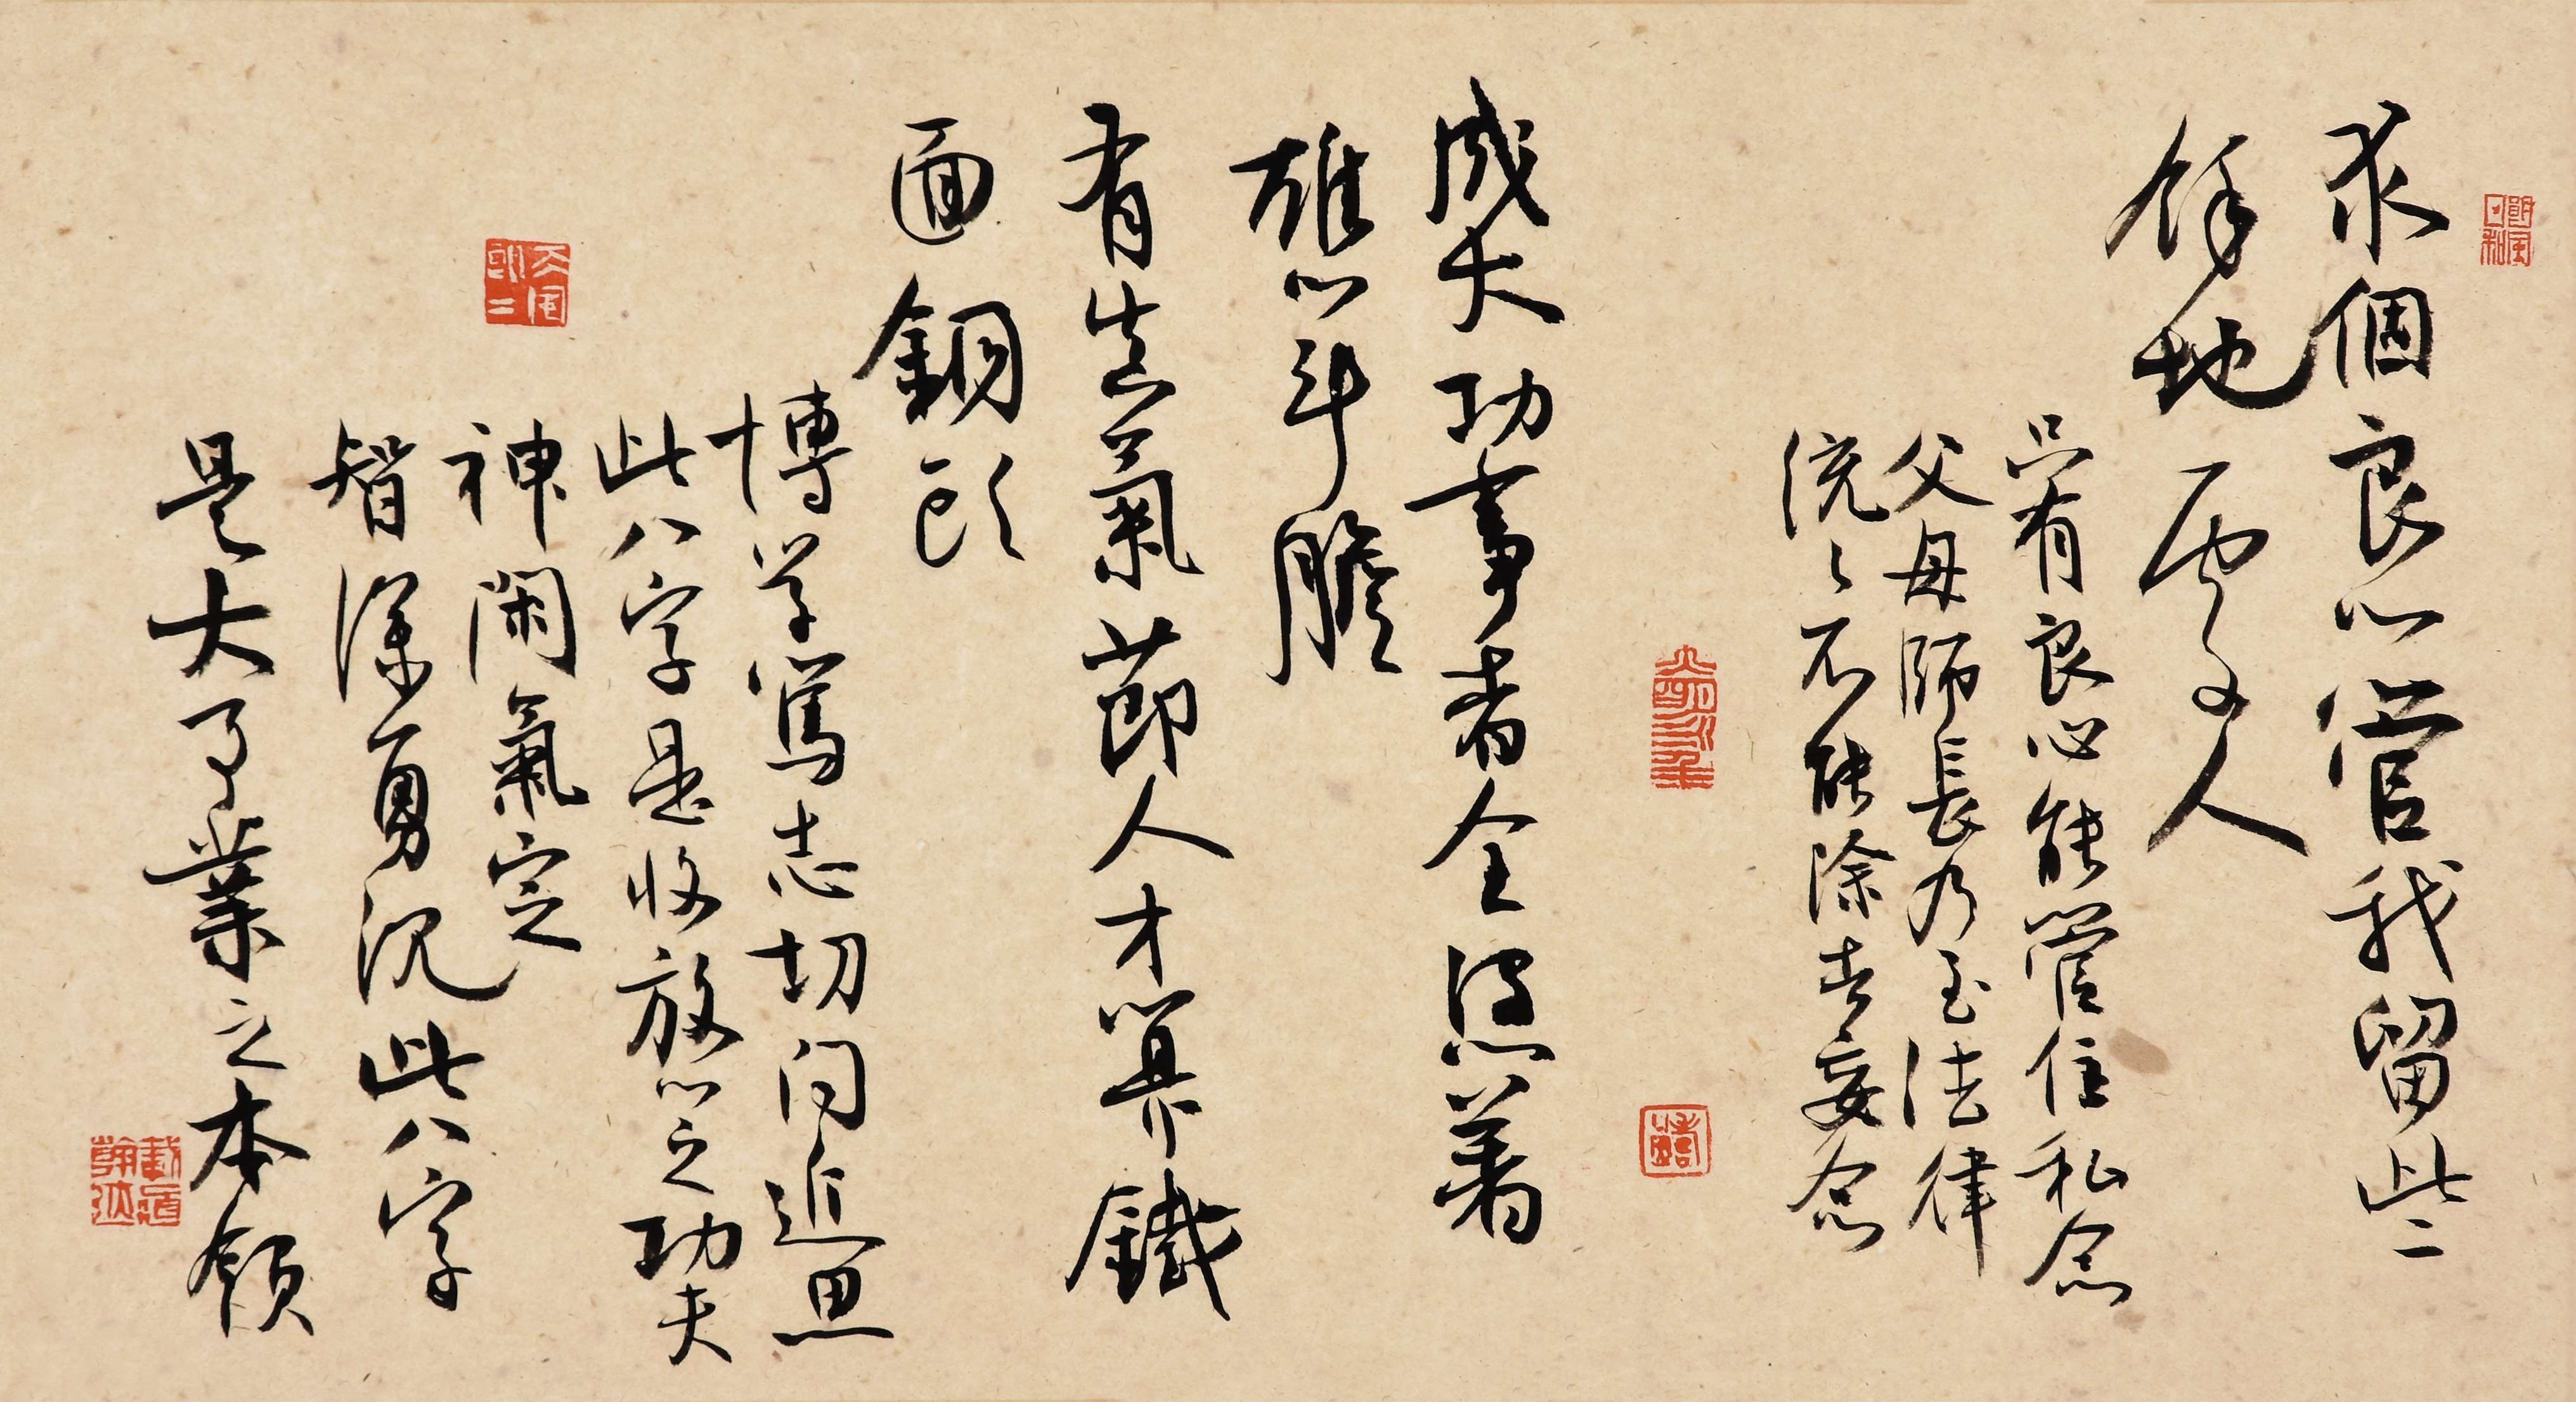 求個良心管我留些
餘地處人
只有良心能管住私念
父母師長乃至法律
統統不能除去妄念
成大功事者全憑著
雄心斗膽
有生氣節人才算鐵
面銅頭
博学篤志切问近思
此八字是收放心之功夫
神閑氣定
智深勇沉此八字
是大事業之本領